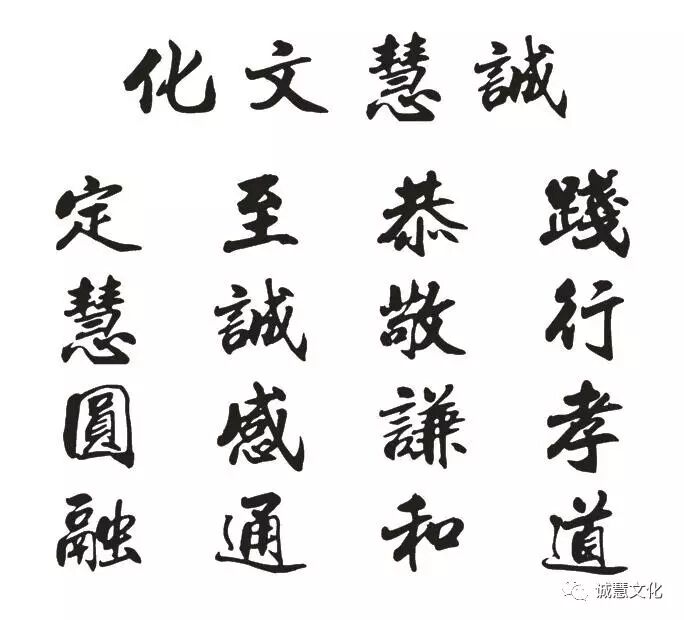 誠慧文化
踐行孝道
恭敬謙和
至誠感通
定慧圓融
诚慧文化